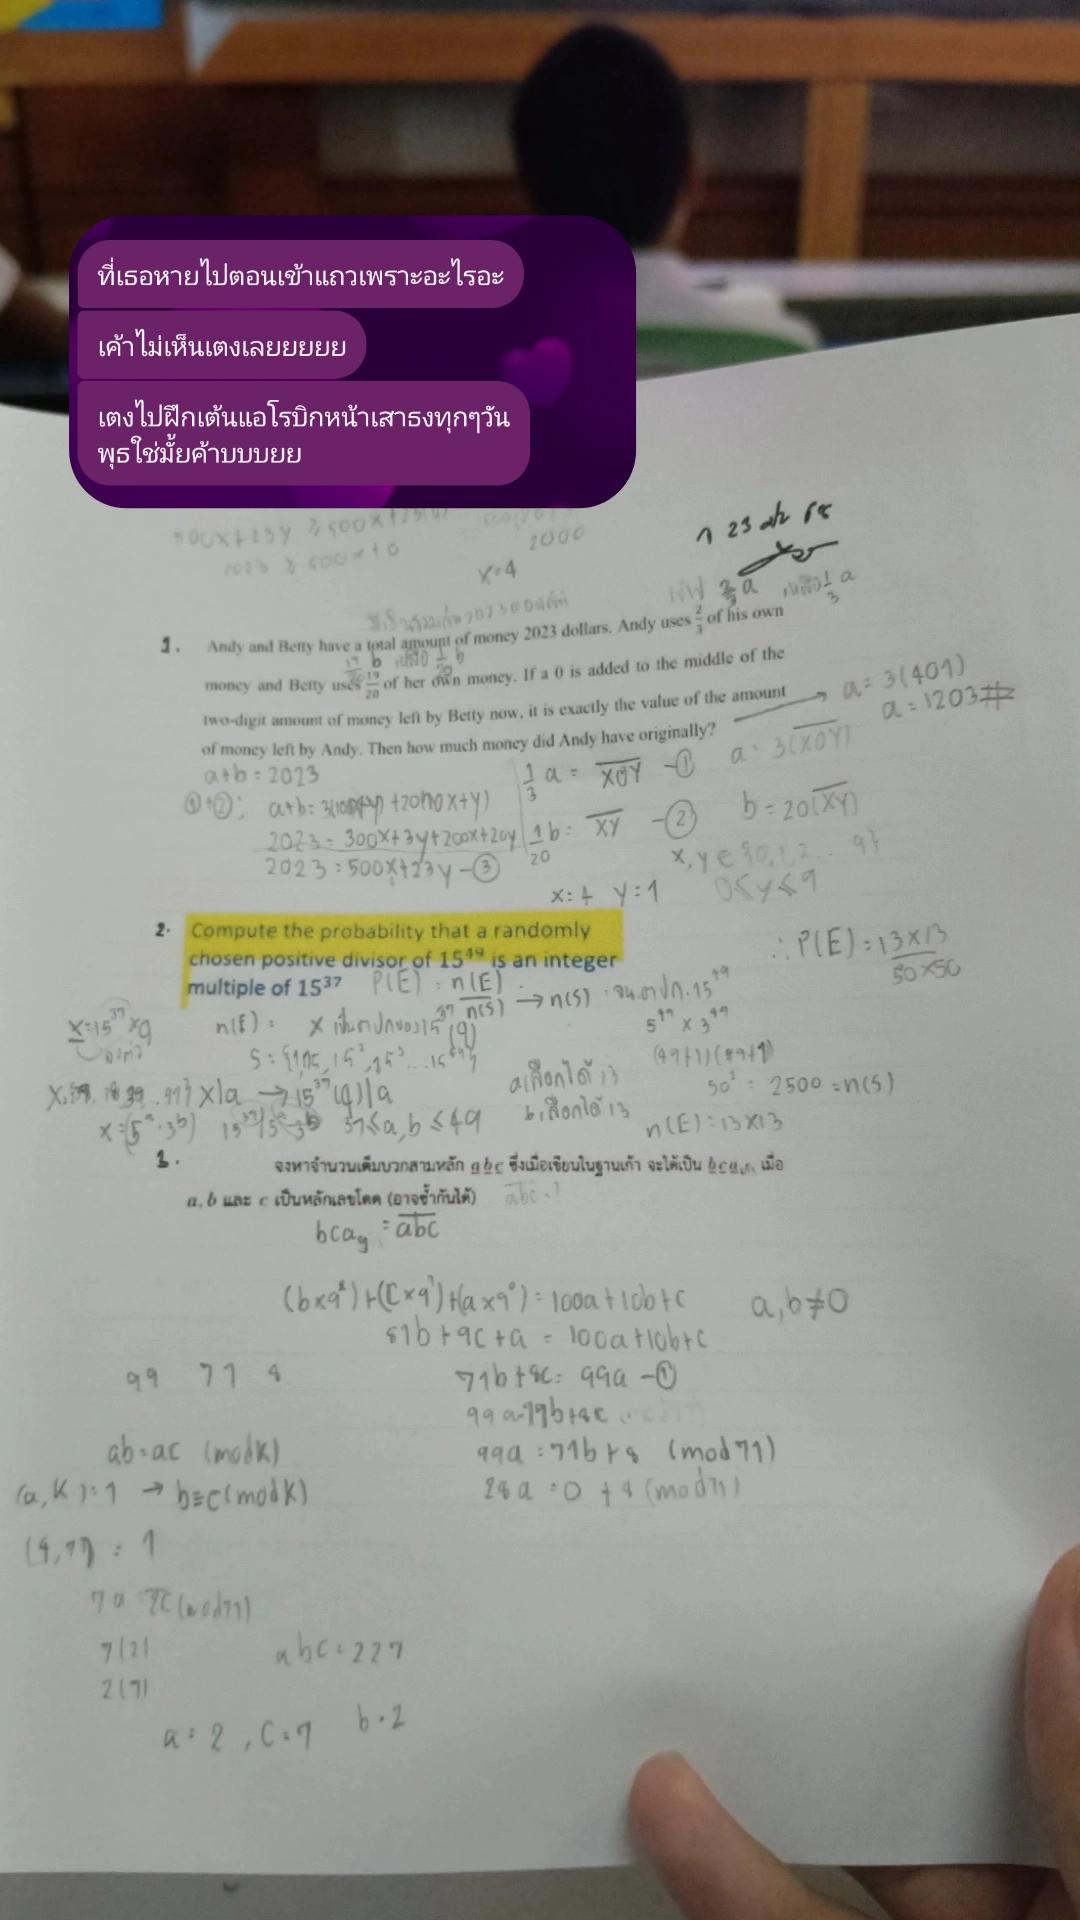 ที่เธอหายไปตอนเข้าแถวเพราะอะไรอะ
เค้าไม่เห็นเตงเลยยยยย
เตงไปฝึกเต้นแอโรบิกหน้าเสาธงทุกๆวัน
พุธใช่มั้ยค้าบบบยย
2000
x=4
1. Andy and Betty have a total amount of money 2023 dollars. Andy uses 2/3 of his own
money and Betty uses 19/20 of her own money. If a 0 is added to the middle of the
two-digit amount of money left by Betty now, it is exactly the value of the amount
of money left by Andy. Then how much money did Andy have originally?
a = 3(401)
a = 1203#
a+b = 2023
1/3 a = X0Y - ①
a = 3(X0Y)
①+②: a+b = +20(10x+y)
1/20 b = XY - ②
b = 20(XY)
2023 = 300x+3y+200x+20y
2023 = 500x+23y - ③
x,y ∈ {0,1,2...9}
0≤y≤9
x=4 y=1
2. Compute the probability that a randomly
chosen positive divisor of 15⁴⁹ is an integer
multiple of 15³⁷
P(E) = n(E)/n(S) → n(S) =
∴ P(E) = 13×13/50×50
x=15³⁷×q
n(E) =
5⁴⁹ × 3⁴⁹
(49+1)(49+1)
50² = 2500 = n(S)
x|a → 15³⁷(q)|a
a เลือกได้ 13
b เลือกได้ 13
x=(5ᵃ·3ᵇ)
37≤a,b≤49
n(E) = 13×13
3. จงหาจำนวนเต็มบวกสามหลัก abc ซึ่งเมื่อเขียนในฐานเก้า จะได้เป็น bcaเก้า เมื่อ
a, b และ c เป็นหลักเลขโดด (อาจซ้ำกันได้)
bca₉ = abc
(b×9²)+(c×9¹)+(a×9⁰) = 100a+10b+c
a,b≠0
81b+9c+a = 100a+10b+c
99 71 8
71b+8c = 99a - ①
ab=ac (mod k)
99a = 71b+8 (mod 71)
(a,k)=1 → b≡c(mod k)
28a = 0 + 8 (mod 71)
(4,71) = 1
7a 2c(mod71)
7(2)
abc = 227
2(7)
a=2, c=7 b=2